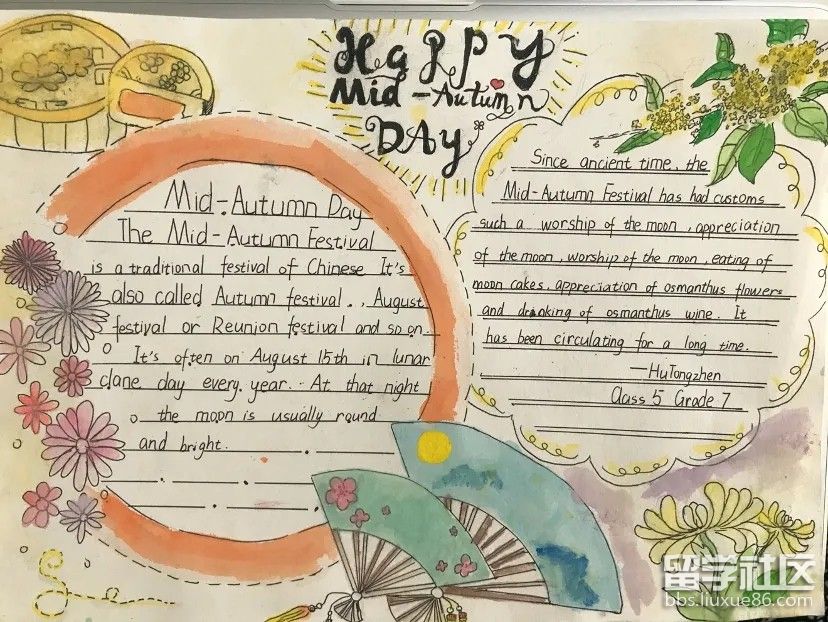 Happy
Mid-Autumn
DAy
Mid-Autumn Day
The Mid-Autumn Festival
is a traditional festival of Chinese It's
also called Autumn festival., August
festival or Reunion festival and so on.
It's often on August 15th in lunar
clane day every year. At that night
the moon is usually round
and bright.
Since ancient time, the
Mid-Autumn Festival has had customs
such a worship of the moon, appreciation
of the moon, worship of the moon, eating of
moon cakes, appreciation of osmanthus flowers
and drinking of osmanthus wine. It
has been circulating for a long time.
—HuTongzhen
Class 5 Grade 7
留学社区
bbs.liuxue86.com